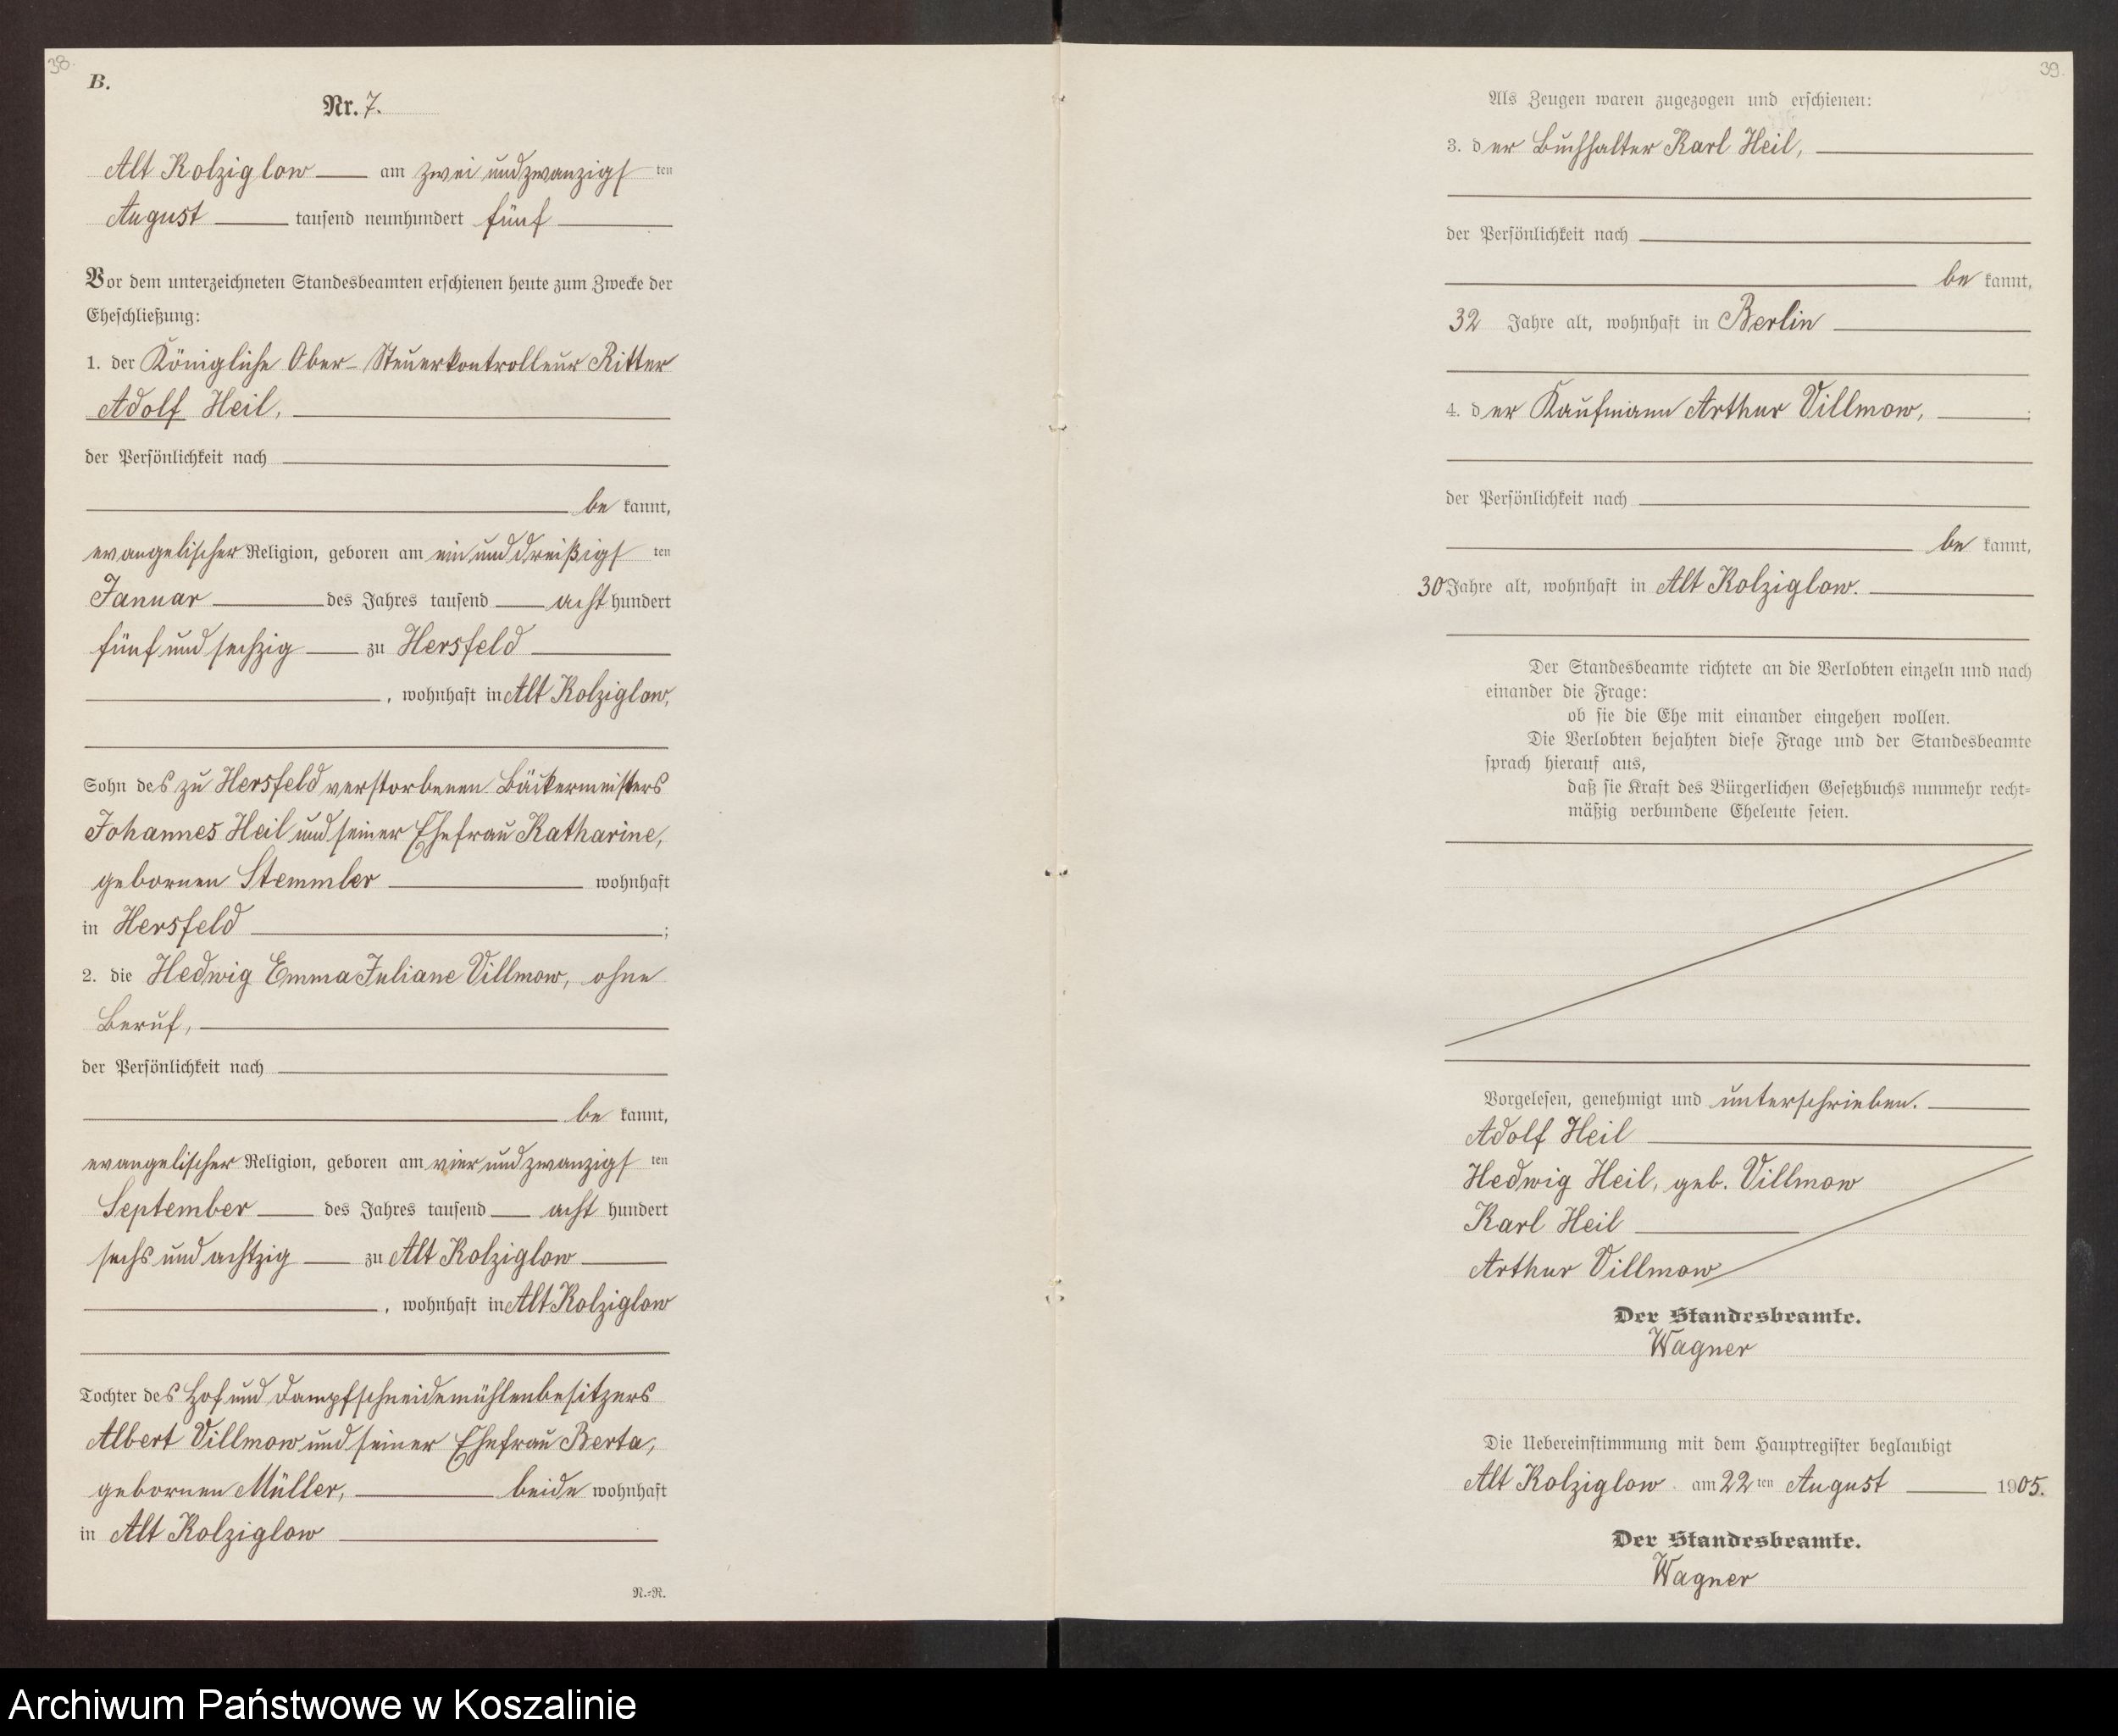 38.
B.
Nr. 7.
Alt Kolziglow am zwei und zwanzigs ten
August tausend neunhundert fünf
Vor dem unterzeichneten Standesbeamten erschienen heute zum Zwecke der
Eheschließung:
1. der Königliche Ober-Steuerkontrolleur Ritter
Adolf Heil,
der Persönlichkeit nach
be kannt,
evangelischer Religion, geboren am ein und dreißigs ten
Januar des Jahres tausend acht hundert
fünf und sechzig zu Hersfeld
, wohnhaft in Alt Kolziglow,
Sohn des zu Hersfeld verstorbenen Bäckermeisters
Johannes Heil und seiner Ehefrau Katharine,
gebornen Stemmler wohnhaft
in Hersfeld ;
2. die Hedwig Emma Juliane Villmow, ohne
Beruf,
der Persönlichkeit nach
be kannt,
evangelischer Religion, geboren am vier und zwanzigs ten
September des Jahres tausend acht hundert
sechs und achtzig zu Alt Kolziglow
, wohnhaft in Alt Kolziglow
Tochter des Hof und Dampfschneidemühlenbesitzers
Albert Villmow und seiner Ehefrau Berta,
gebornen Müller, beide wohnhaft
in Alt Kolziglow
N.-R.
39.
Als Zeugen waren zugezogen und erschienen:
3. der Buchhalter Karl Heil,
der Persönlichkeit nach
be kannt,
32 Jahre alt, wohnhaft in Berlin
4. der Kaufmann Arthur Villmow,
der Persönlichkeit nach
be kannt,
30 Jahre alt, wohnhaft in Alt Kolziglow.
Der Standesbeamte richtete an die Verlobten einzeln und nach
einander die Frage:
ob sie die Ehe mit einander eingehen wollen.
Die Verlobten bejahten diese Frage und der Standesbeamte
sprach hierauf aus,
daß sie Kraft des Bürgerlichen Gesetzbuchs nunmehr recht-
mäßig verbundene Eheleute seien.
Vorgelesen, genehmigt und unterschrieben.
Adolf Heil
Hedwig Heil, geb. Villmow
Karl Heil
Arthur Villmow
Der Standesbeamte.
Wagner
Die Uebereinstimmung mit dem Hauptregister beglaubigt
Alt Kolziglow am 22 ten August 1905.
Der Standesbeamte.
Wagner
Archiwum Państwowe w Koszalinie